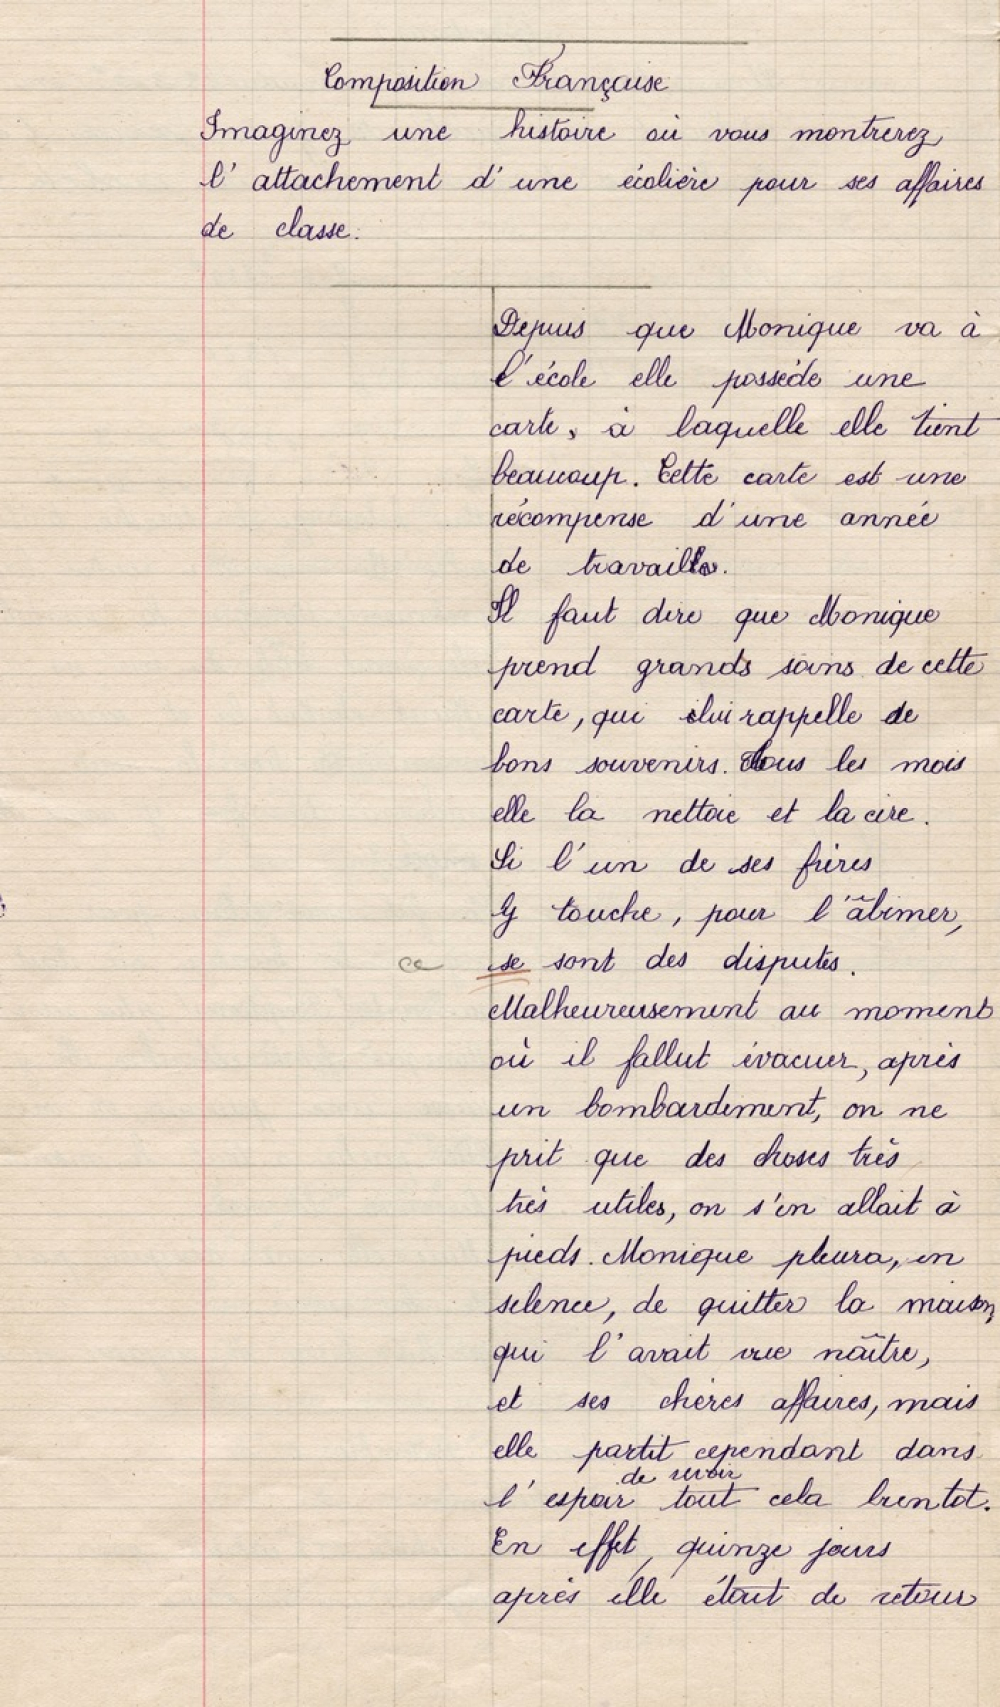 Composition Française
Imaginez une histoire où vous montrerez
l'attachement d'une écolière pour ses affaires
de classe.
Depuis que Monique va à
l'école elle possède une
carte, à laquelle elle tient
beaucoup. Cette carte est une
récompense d'une année
de travail.
Il faut dire que Monique
prend grands soins de cette
carte, qui lui rappelle de
bons souvenirs. Tous les mois
elle la nettoie et la cire.
Si l'un de ses frères
y touche, pour l'âbimer,
ce se sont des disputes.
Malheureusement au moment
où il fallut évacuer, après
un bombardement, on ne
prit que des choses très
très utiles, on s'en allait à
pieds. Monique pleura, en
silence, de quitter la maison
qui l'avait vue naître,
et ses chères affaires, mais
elle partit cependant dans
de revoir
l'espoir tout cela bientot.
En effet, quinze jours
après elle était de retour